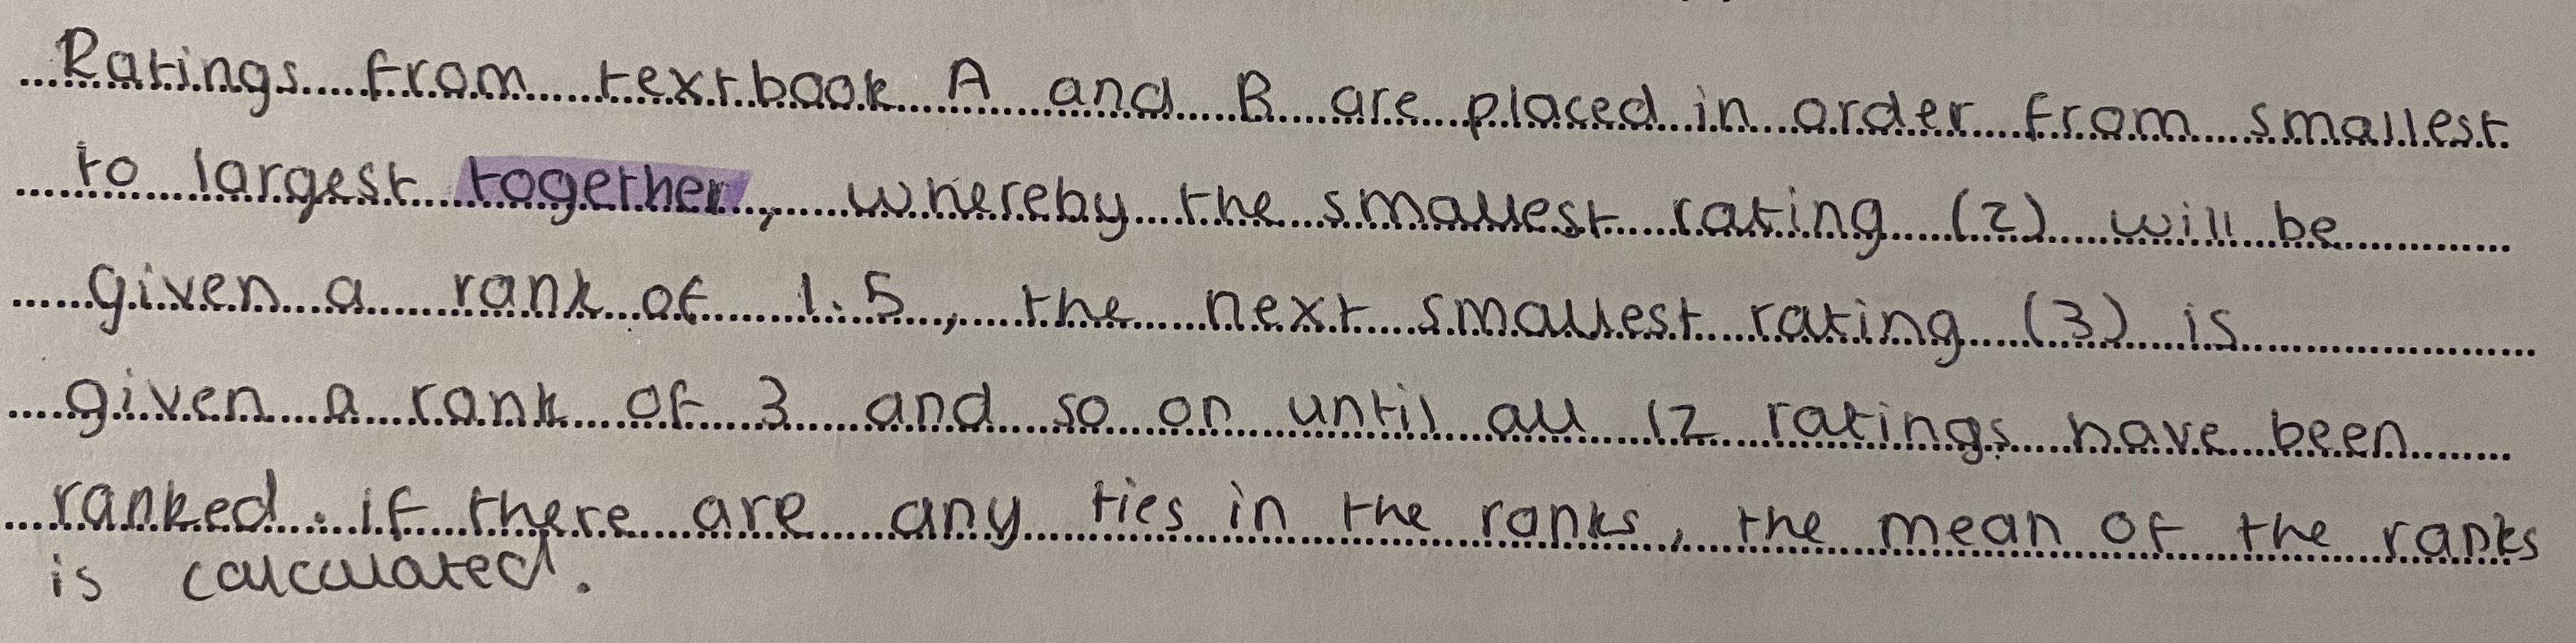 Ratings from textbook A and B are placed in order from smallest
to largest together, whereby the smallest rating (2) will be
given a rank of 1.5, the next smallest rating (3) is
given a rank of 3 and so on until all 12 ratings have been
ranked. if there are any ties in the ranks, the mean of the ranks
is calculated.